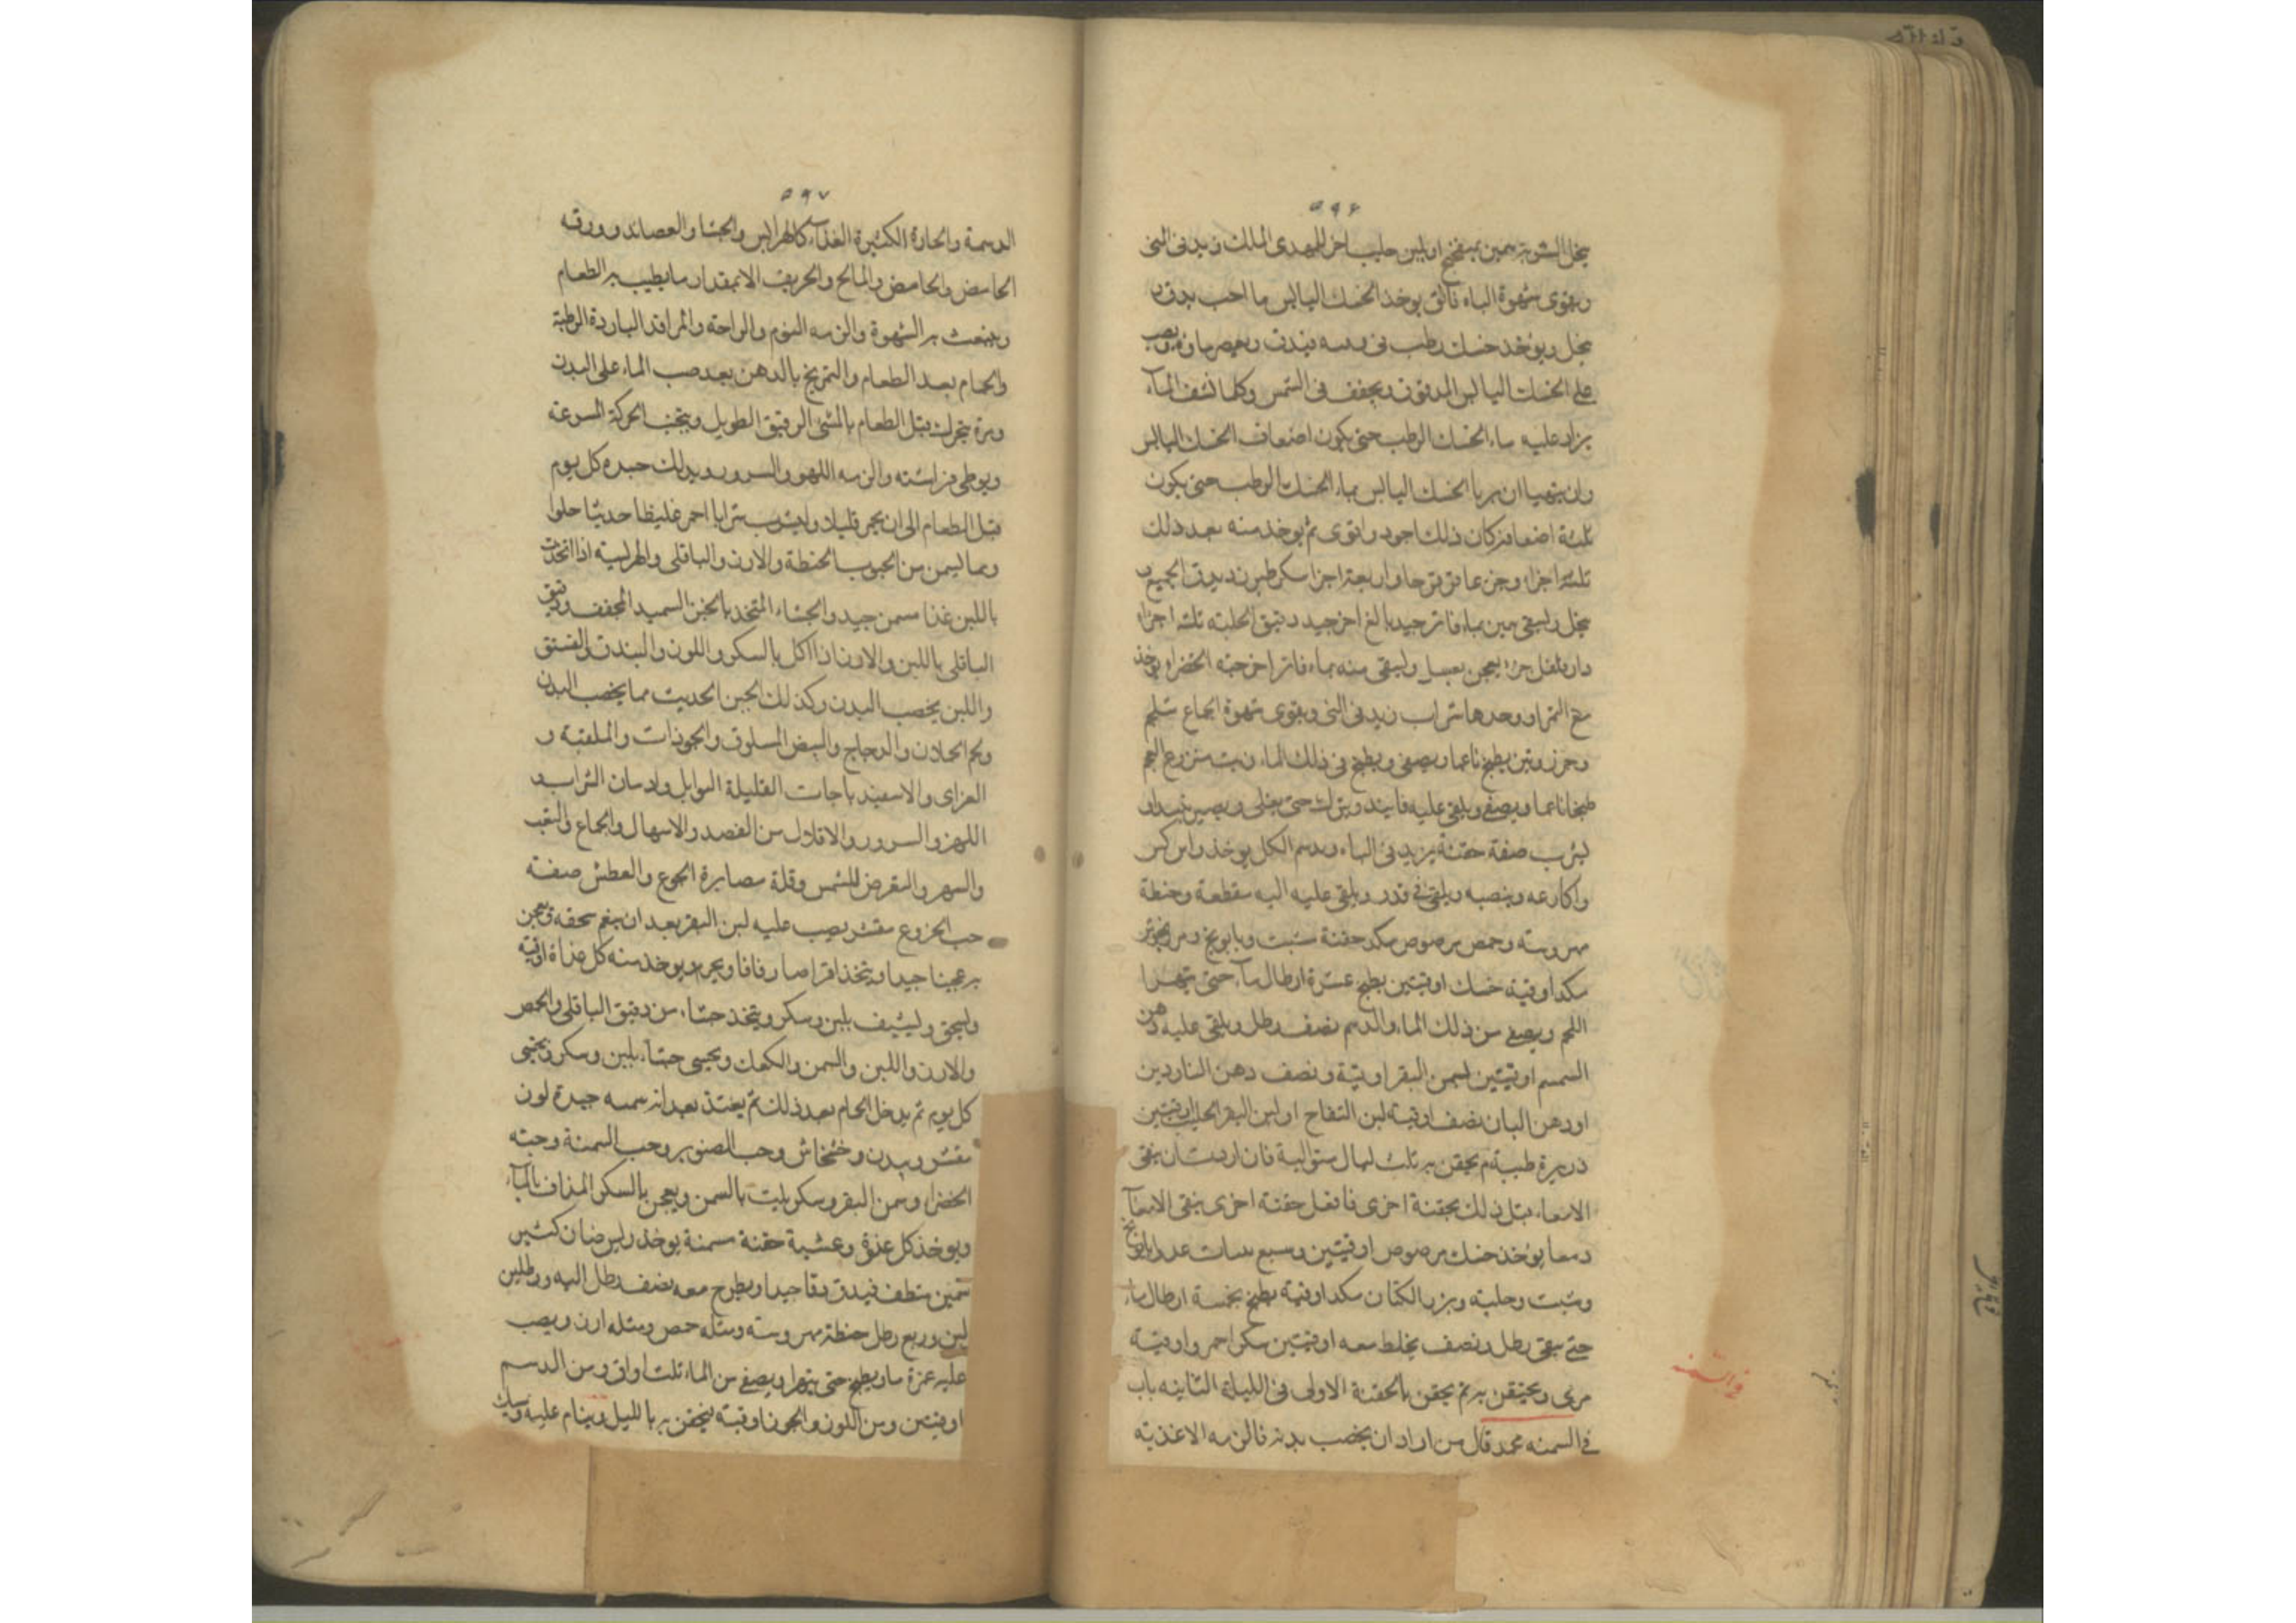 ٥٩٦
وبقوى شهوة الباه فائق يوخذ الخسك اليابس ما احب يدق و
ينخل ويوخذ خسك رطب فى
على الخسك اليابس المدقوق ويجفف فى الشمس وكلما نشف الماء
يزاد عليه ماء الخسك الرطب حتى يكون اضعاف الخسك اليابس
وان تهيا ان يربا الخسك اليابس بماء الخسك الرطب حتى يكون
ثلثة اضعافه كان ذلك اجود واقوى ثم يوخذ منه بعد ذلك
ثلثة اجزاء وجزء عاقرقرحا واربعة اجزا سكر طبرزد يدق الجميع و
ينخل ويسقى بماء فاتر جيد بالغ اخر جيد دقيق الحلبة ثلثه اجزاء
دار فلفل جزء يعجن بعسل ويسقى منه بماء فاتر اخر حبة الخضرا يوخذ
مع التمر او وحدها شراب يزيد فى المنى ويقوى شهوة الجماع شلجم
وجزر وتين يطبخ ناعما ويصفى ويطبخ فى ذلك الماء زبيب منزوع العجم
طبخا ناعما ويصفى ويلقى عليه فانيد ويترك حتى يغلى ويصير نبيذا و
يشرب صفة حقنة يزيد فى الباه ويسم الكل يوخذ راس كبش
واكارعه وينصبه ويلقى فى قدر ويلقى عليه اليه مقطعة وحنطة
مهروسه وحمص مرضوض مكد حفنة شبت وبابونج
مكد اوقية خسك اوقيتين يطبخ عشرة ارطال ماء حتى يتهرا
اللحم ويصفى من ذلك الماء والدسم نصف رطل ويلقى عليه دهن
السمسم اوقيتين سمن البقر اوقية ونصف دهن الناردين
او دهن البان نصف اوقية لبن اللقاح او لبن البقر الحليب اوقيتين
ذريرة طيبة ثم يحقن به ثلث ليال متوالية فان اردت ان ينقى
الامعاء قبل ذلك بحقنة اخرى فافعل حقنة اخرى ينقى الامعاء
ومعا يوخذ خسك مرضوض اوقيتين وسبع
وشبت وحلبه وبزر الكتان مكد اوقية يطبخ بخمسة ارطال ماء
حتى يبقى رطل ونصف يخلط معه اوقيتين سكر احمر واوقية
مرى ويحتقن به ثم يحقن بالحقنة الاولى فى الليلة الثانيه باب
فى السمنه محمد قال من اراد ان يخصب بدنه فالزمه الاغذيه
فى السمنه
٥٩٧
الدسمة والحارة الكثيرة الغذاء كالهرايس والحشا والعصائد ووقه
الحامض والحامض والمالح والحريف الا بمقدار ما يطيب به الطعام
وينبعث به الشهوة والزمه النوم والراحة والمراقد الباردة الرطبة
والحمام بعد الطعام والتمريخ بالدهن بعد صب الماء على البدن
ومره يتحرك قبل الطعام بالمشى الرقيق الطويل ويتجنب الحركة المسرعة
ويوطى فراشه والزمه اللهو والسرور ويدلك جسده كل يوم
قبل الطعام الى ان يحمر قليلا وليشرب شرابا احمر غليظا حديثا حلوا
ومما يسمن من الحبوب الحنطة والارز والباقلى والهريسة اذا اتخذت
باللبن غذا مسمن جيد والحشاء المتخذ بالخبز السميد المجفف ودقيق
الباقلى باللبن والارز اذا اكل بالسكر واللوز والبندق والفستق
واللبن يخصب البدن وكذلك الجبن الحديث مما يخصب البدن
ولحم الحملان والدجاج والبيض المسلوق والجوذابات والملقبة و
الهزاى والاسفيدباجات القليلة التوابل وادمان الشراب و
اللهو والسرور والاقلال من الفصد والاسهال والجماع والتعب
والسهر والتعرض للشمس وقلة مصابرة الجوع والعطش صفته
حب الخروع مقشر يصب عليه لبن البقر بعد ان ينعم سحقه ويعجن
به عجنا جيدا ويتخذ اقراصا رقاقا ويوخذ منه كل غداة اوقية
وليسحق بلبن وسكر ويتخذ حشاء من دقيق الباقلى والحمص
والارز واللبن والسمن والكعك ويحسى حشاء بلبن وسكر
كل يوم ثم يدخل الحمام بعد ذلك ثم يغتذ بعد انه مسمنه جيدة لوز
مقشر وبندق وخشخاش وحب الصنوبر وحب السمنة وحبه
الخضراء وسمن البقر وسكر يلت بالسمن ويعجن بالسكر المذاف بالماء
ويوخذ كل غدوة وعشية حقنة مسمنة يوخذ راس ضان كثير
سمين ينظف فيدق دقا جيدا ويطرح معه نصف رطل اليه ورطلين
لبن وربع رطل حنطة مهروسه ومثله حمص ومثله ارز ويصب
عليه غمرة ما ويطبخ حتى يتهرا ويصفى من الماء ثلث اواق ومن الدسم
اوقيتين ومن اللوز والجوز اوقية يحتقن به بالليل وينام عليه